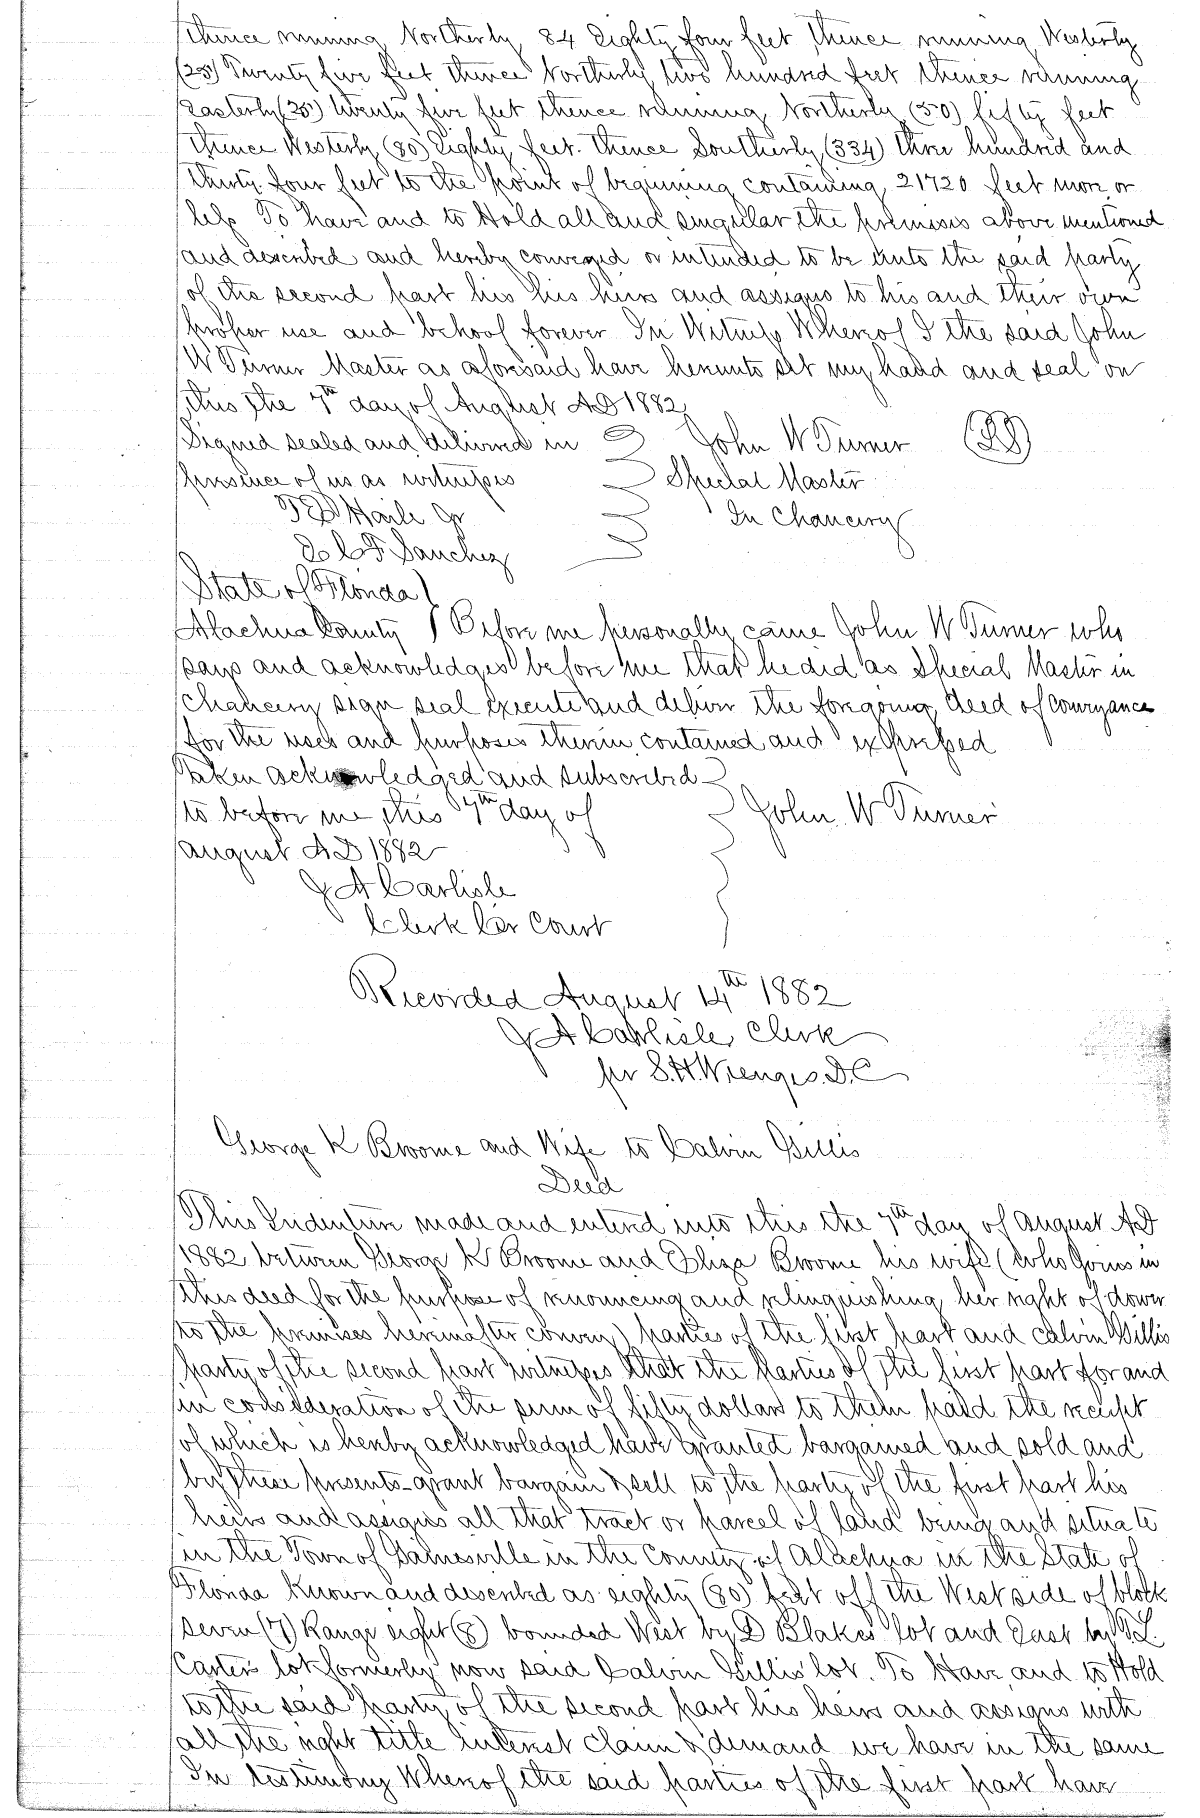 thence running Northerly 84 Eighty four feet thence running Westerly
(25) Twenty five feet thence Northerly two hundred feet thence running
Easterly (25) twenty five feet thence running Northerly (50) fifty feet
thence Westerly (80) Eighty feet. thence Southerly (334) three hundred and
thirty four feet to the point of beginning containing 21720 feet more or
less To have and to Hold all and singular the premises above mentioned
and described and hereby conveyed or intended to be unto the said party
of the second part his his heirs and assigns to his and their own
proper use and behoof forever In Witness Whereof I the said John
W Turner Master as aforesaid have hereunto set my hand and seal on
this the 7th day of August AD 1882
Signed sealed and delivered in John W Turner
presence of us as witnesses Special Master
Haile Jr In Chancery
Sanchez
State of Florida
Alachua County Before me personally came John W Turner who
says and acknowledges before me that he did as Special Master in
Chancery sign seal execute and deliver the foregoing deed of conveyance
for the uses and purposes therein contained and expressed
Taken acknowledged and subscribed
to before me this 7th day of John W Turner
August AD 1882
J A Carlisle
Clerk Cir Court
Recorded August 14th 1882
J A Carlisle Clerk
pr S. H. D.C
George K Broome and Wife to Calvin Gillis
Deed
This Indenture made and entered into this the 7th day of August AD
1882 between George K Broome and Eliza Broome his wife (who joins in
this deed for the purpose of renouncing and relinquishing her right of dower
to the premises hereinafter convey) parties of the first part and Calvin Gillis
party of the second part witnesses that the parties of the first part for and
in consideration of the sum of fifty dollars to them paid the receipt
of which is hereby acknowledged have granted bargained and sold and
by these presents grant bargain & sell to the party of the first part his
heirs and assigns all that tract or parcel of land being and situate
in the Town of Gainesville in the County of Alachua in the State of
Florida known and described as eighty (80) feet off the West side of block
seven (7) Range eight (8) bounded West by D Blakes lot and East by
Carters lot formerly now said Calvin Gillis lot. To Have and to Hold
to the said party of the second part his heirs and assigns with
all the right title interest claim & demand we have in the same
In testimony Whereof the said parties of the first part have